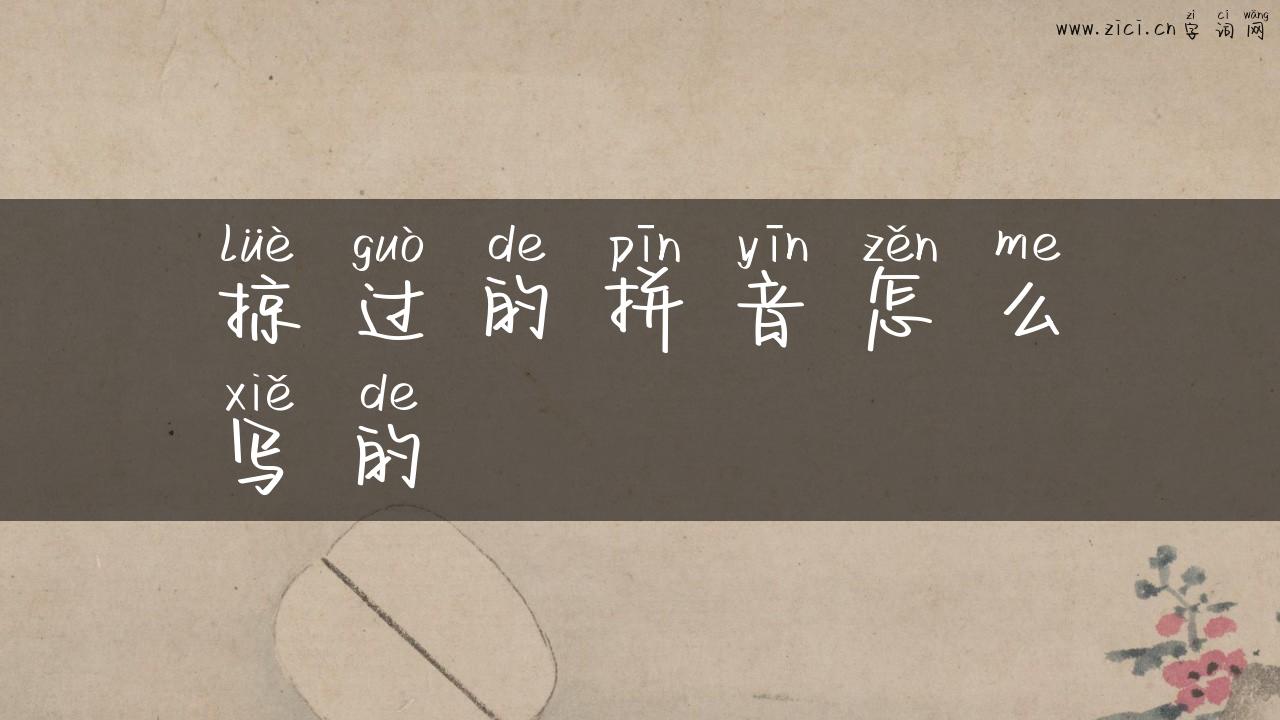 zì cí wǎng
www.zici.cn 字词网
lüè guò de pīn yīn zěn me
掠过的拼音怎么
xiě de
写的